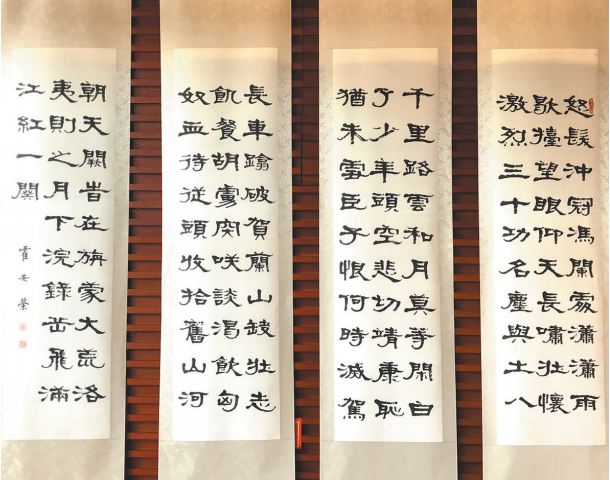 怒髮沖冠馮闌處瀟瀟雨
歇擡望眼仰天長嘯壯懷
激烈三十功名塵與土八
千里路雲和月莫等閑白
了少年頭空悲切靖康恥
猶未雪臣子恨何時滅駕
長車蹹破賀蘭山缺壯志
飢餐胡虜肉咲談渴飲匈
奴血待従頭收拾舊山河
朝天闕旹在旃蒙大荒洛
夷則之月下浣錄岳飛滿
江紅一闋
霍安榮